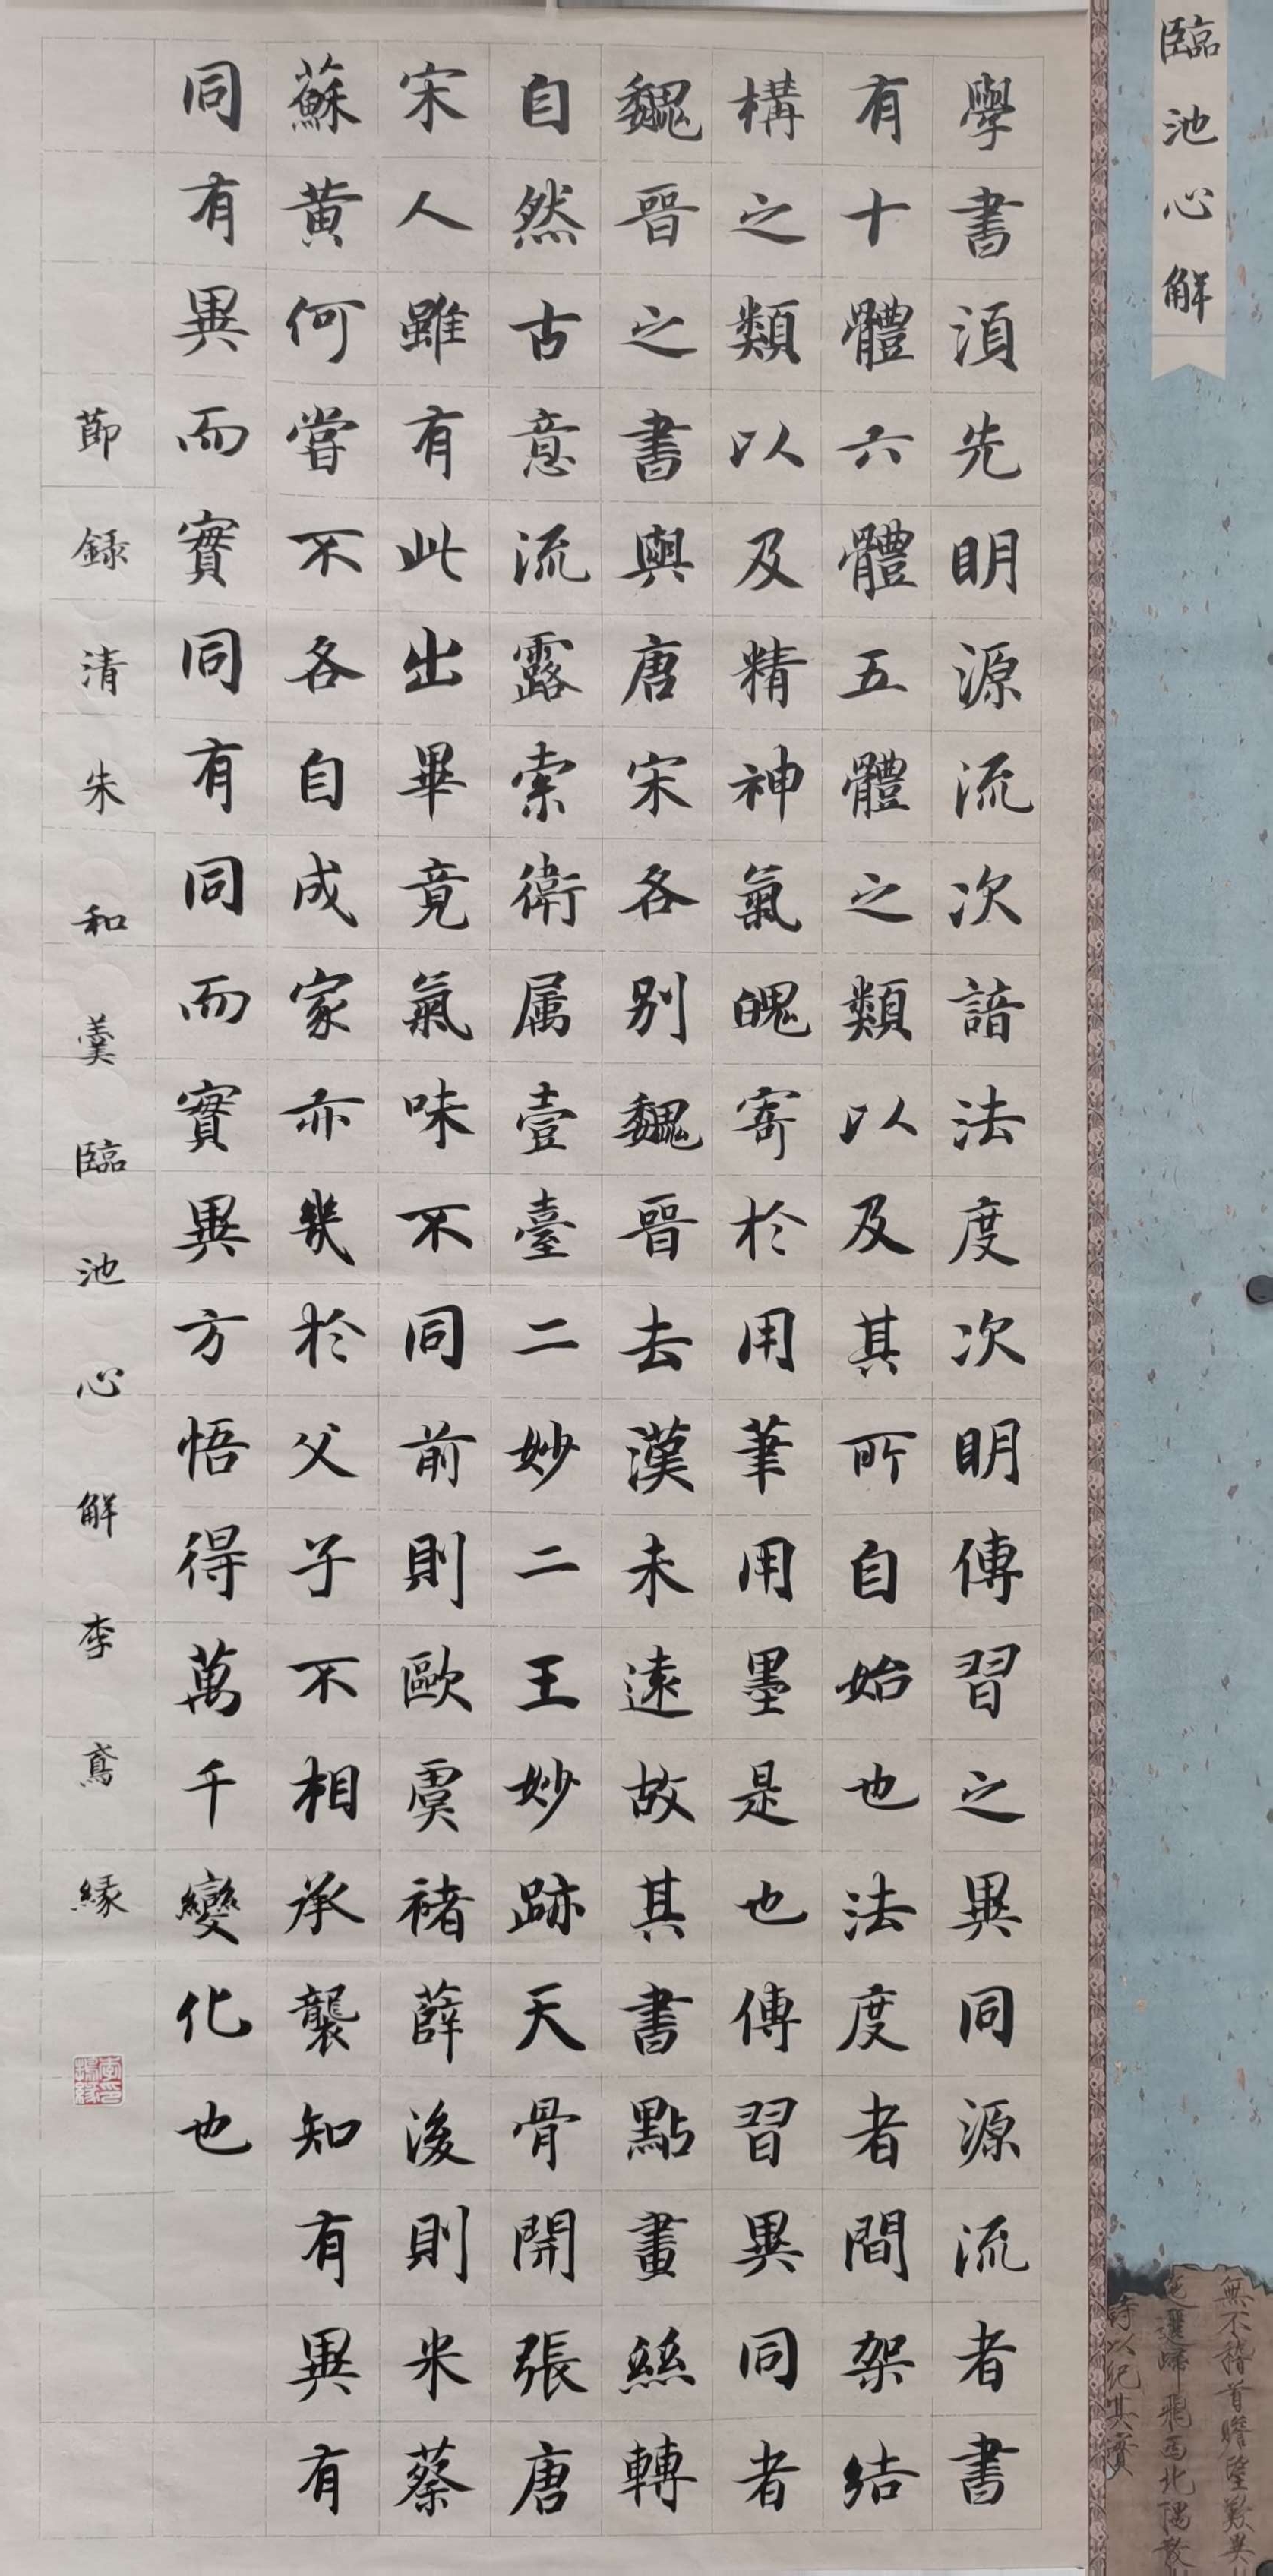 臨池心解
學書須先明源流次諳法度次明傳習之異同源流者書
有十體六體五體之類以及其所自始也法度者間架結
構之類以及精神氣魄寄於用筆用墨是也傳習異同者
魏晉之書與唐宋各別魏晉去漢未遠故其書點畫絲轉
自然古意流露索衛属壹臺二妙二王妙跡天骨開張唐
宋人雖有此出畢竟氣味不同前則歐虞褚薛後則米蔡
蘇黃何嘗不各自成家亦幾於父子不相承襲知有異有
同有異而實同有同而實異方悟得萬千變化也
節錄清朱和羹臨池心解李鳶緣
無不稽首瞻望歎異
西北隅散
詩以紀其實